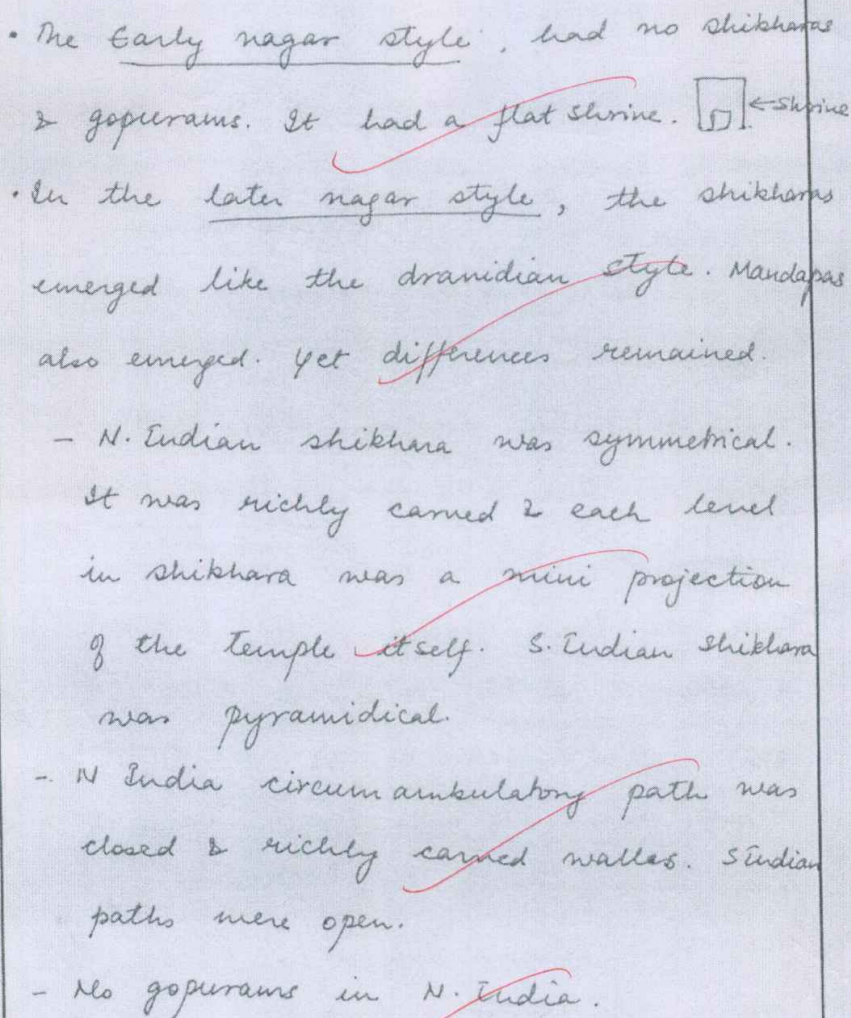 • The Early nagar style, had no shikharas
& gopurams. It had a flat shrine. ←Shrine
• In the later nagar style, the shikharas
emerged like the dravidian style. Mandapas
also emerged. Yet differences remained.
- N. Indian shikhara was symmetrical.
It was richly carved & each level
in shikhara was a mini projection
of the temple itself. S. Indian shikhara
was pyramidical.
- N India circumambulatory path was
closed & richly carved walles. S Indian
paths were open.
- No gopurams in N. India.